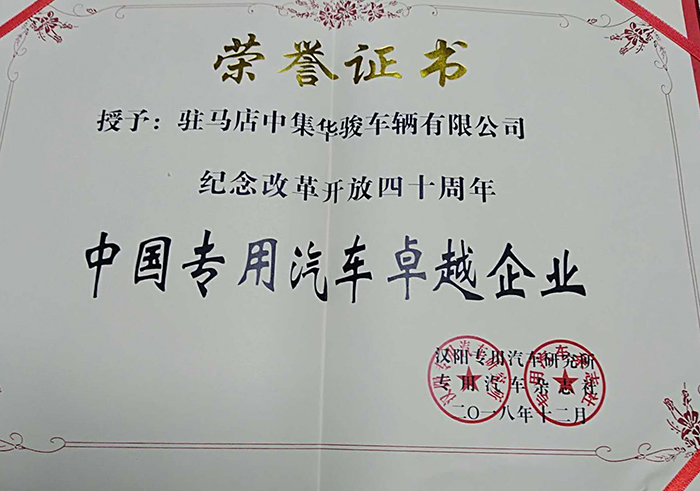 荣誉证书
授予：驻马店中集华骏车辆有限公司
纪念改革开放四十周年
中国专用汽车卓越企业
汉阳专用汽车研究所
专用汽车杂志社
二〇一八年十二月